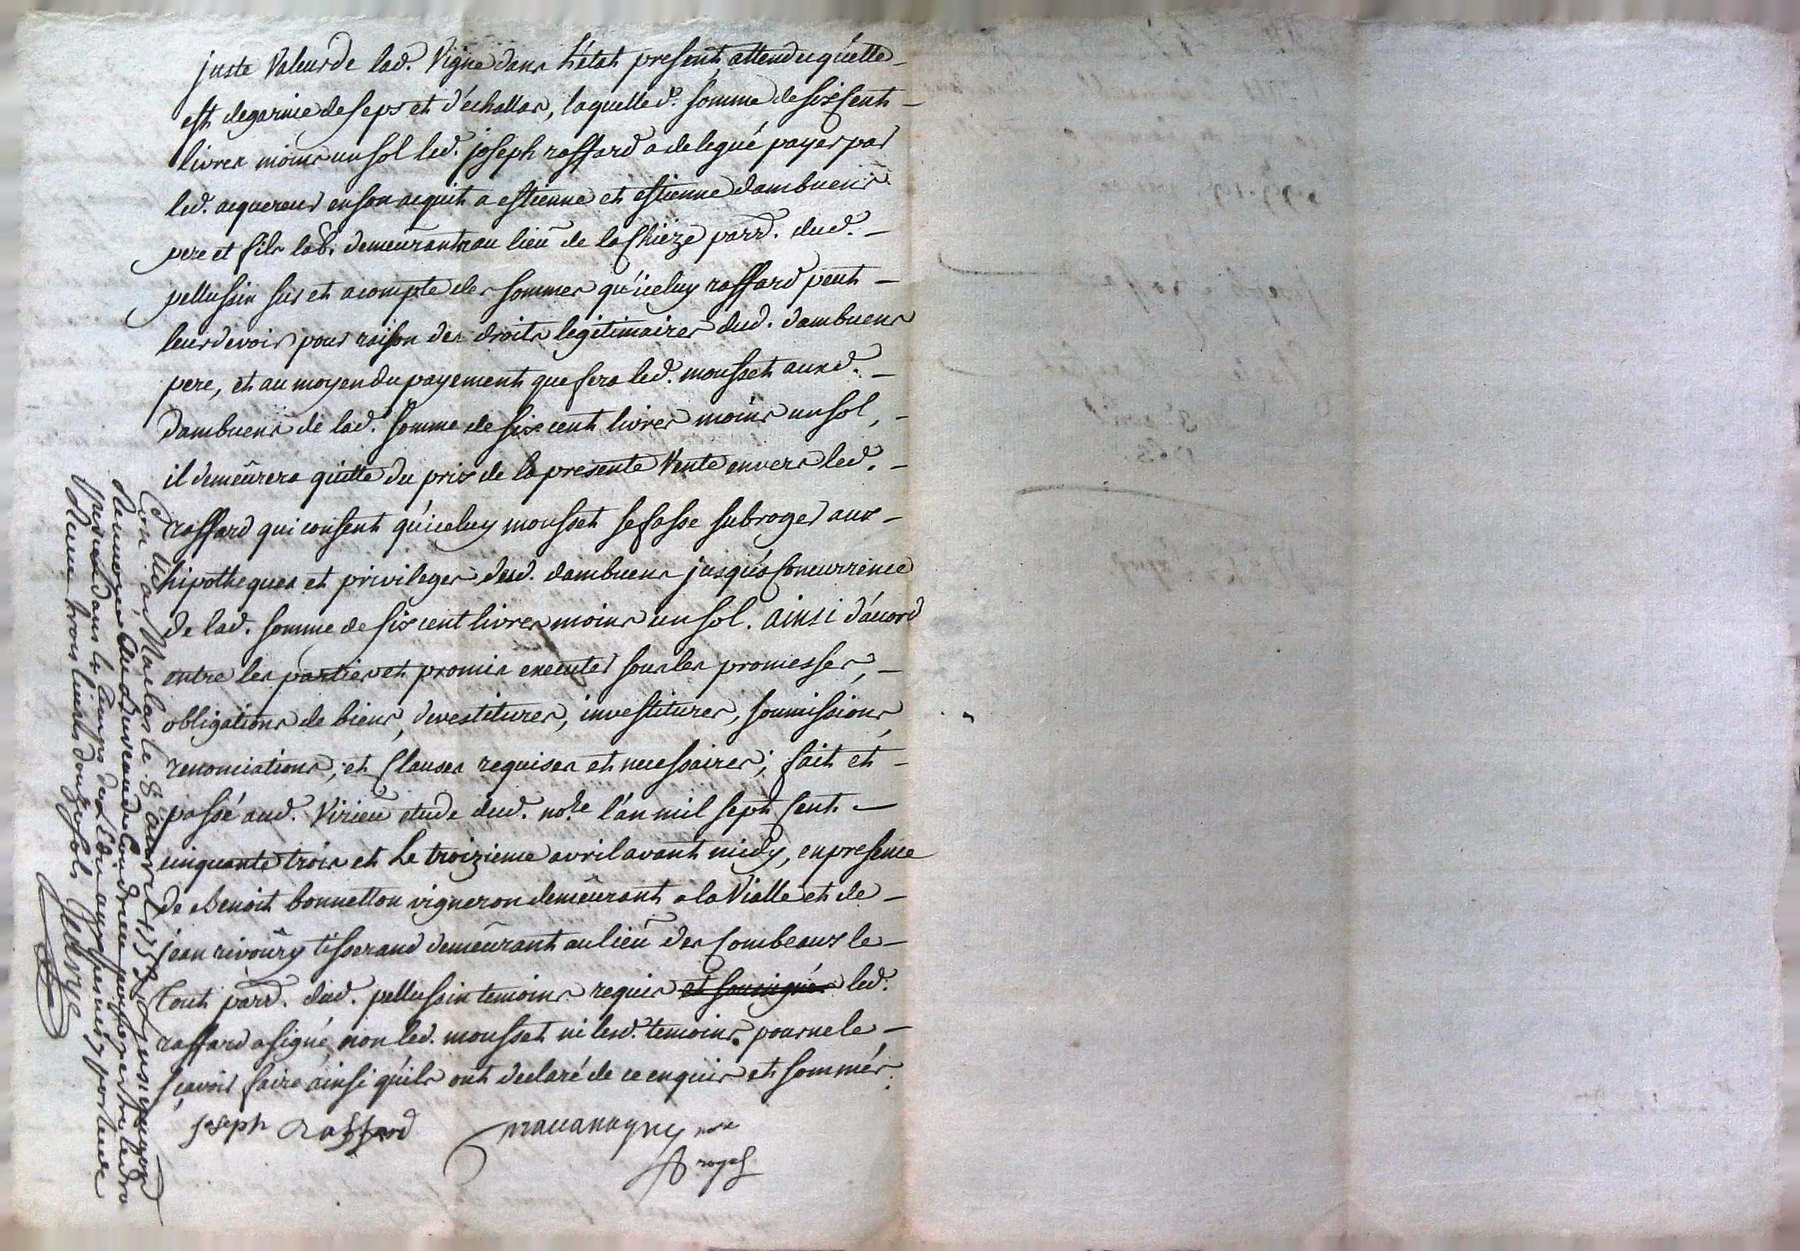 juste Valeur de lad. Vigne dans l'état present, attendu qu'elle
est degarnie de seps et d'échallas, laquelle d. somme de six cent
livres moins un sol led. joseph raffard a delegué payer par
led. acquereur en son acquit a estienne et estienne dambuens
pere et fils lab. demeurants au lieu de la Chieze parr. dud.
pellussin sur et acompte des sommes qu'iceluy raffard peut
leur devoir pour raison des droits legitimaires dud. dambuens
pere, et au moyen du payement que fera led. mousset auxd.
dambuens de lad. somme de six cent livres moins un sol,
il demeûrera quitte du prix de la presente Vente envers led.
raffard qui consent qu'iceluy mousset se fasse subroger aux
hipotheques et privileges desd. dambuens jusqu'a Concurrence
de lad. somme de six cent livres moins un sol. ainsi d'acord
entre les parties et promis executer sous les promesses,
obligations de biens, devestitures, investitures, soumissions,
renonciations, et Clauses requises et necessaires; fait et
passé aud. Virieu etude dud. no.re l'an mil sept Cent
cinquante trois et Le troizieme avril avant midy, en presence
de Benoit bonnetton vigneron demeûrant a la Vialle et de
jean rivoûry tisserand demeûrant au lieu des Combeaux le
tout parr. dud. pellussin temoins requis et soussignés led.
raffard a signé, non led. mousset ni lesd. temoins pour ne le
sçavoir faire ainsi qu'ils ont declaré de ce enquis et sommés.
joseph Raffard
Mauanagny nore
royal
Con.lé a Maclas le 8 avril 1753
dans le temps de
Receu trois livres douze sols